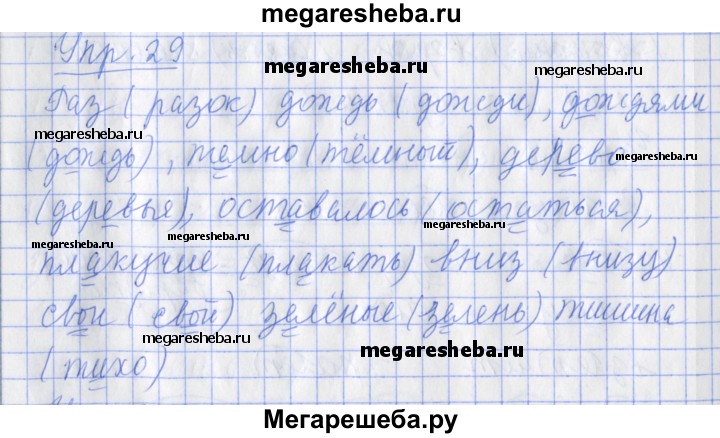 megaresheba.ru
Упр. 29
megaresheba.ru
megaresheba.ru
Раз (разок) дождь (дожди), дождями
megaresheba.ru
(дождь), темно (тёмный), дерево
megaresheba.ru
(деревья), оставалось (остаться),
megaresheba.ru
megaresheba.ru
megaresheba.ru
плакучие (плакать) вниз (внизу)
свои (свой) зелёные (зелень) тишина
megaresheba.ru
megaresheba.ru
(тихо)
Мегарешеба.ру